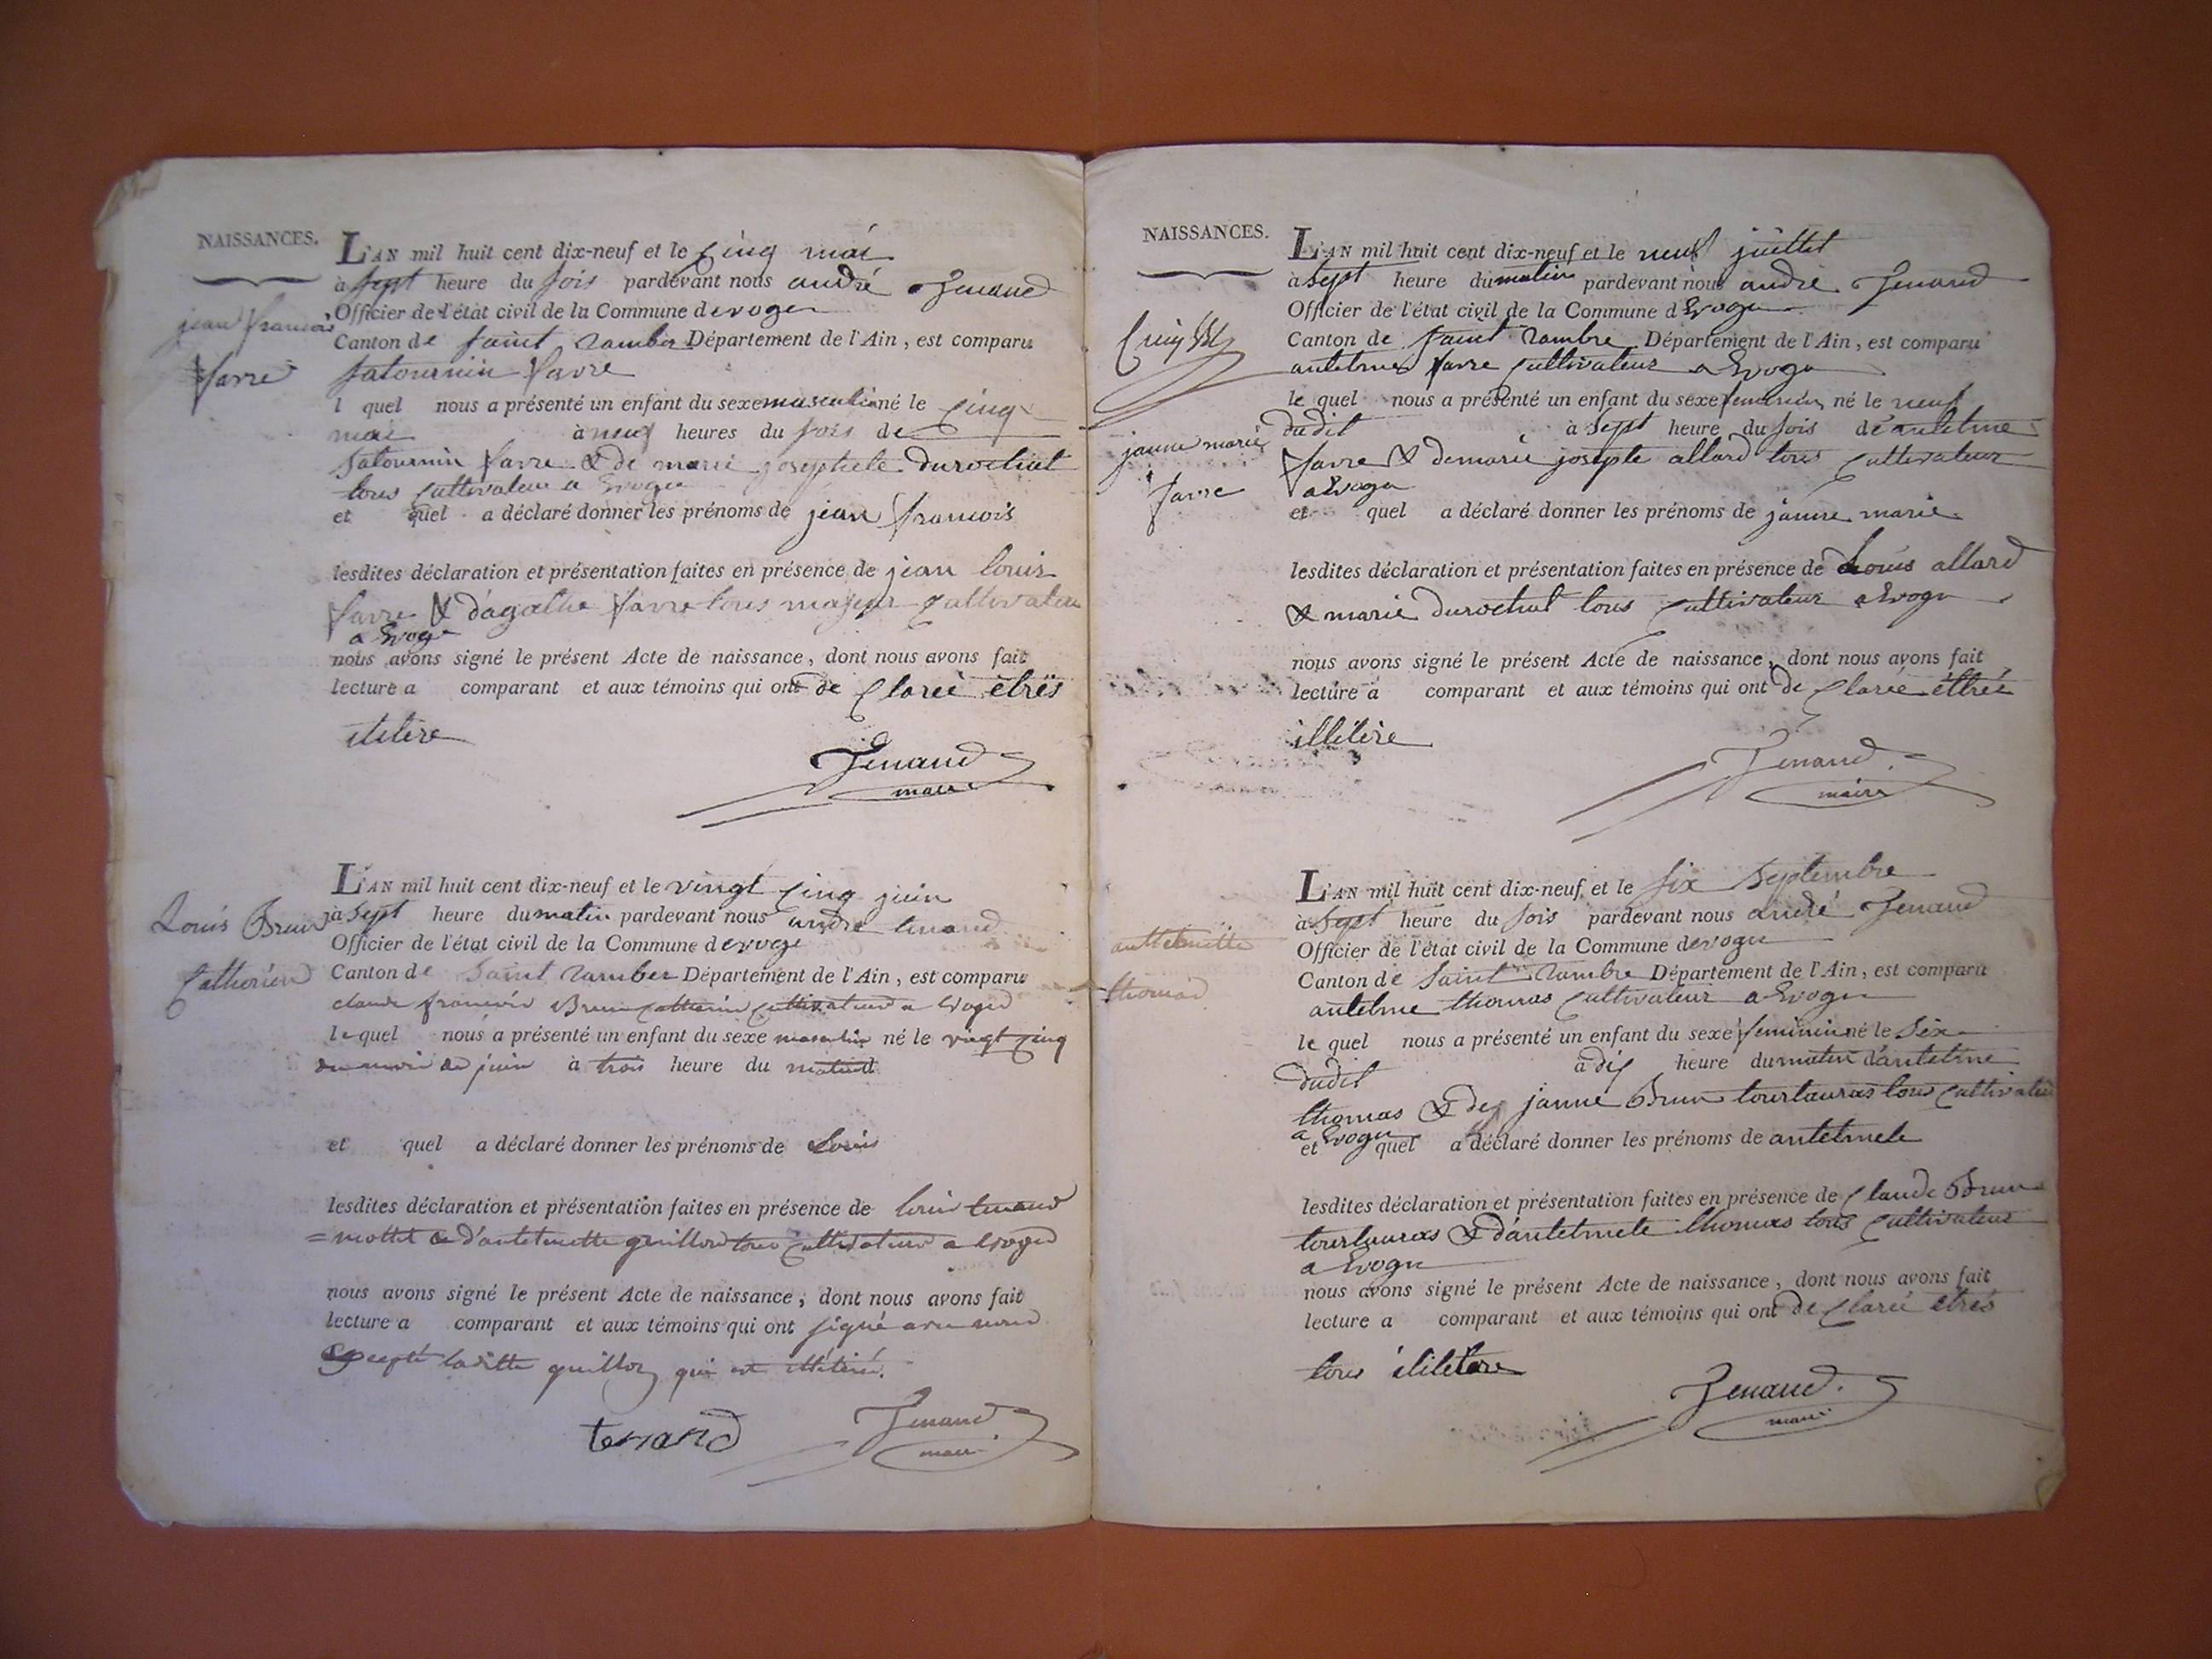 NAISSANCES.
jean francois
favre
L'AN mil huit cent dix-neuf et le cinq mai
à sept heure du soir pardevant nous andré Tenand
Officier de l'état civil de la Commune devoges
Canton de saint ramber Département de l'Ain, est comparu
satournin favre
l quel nous a présenté un enfant du sexe masculin né le cinq
mai à neuf heures du soir de
satournin favre & de marie josephete durochat
tous cultivateur a Evoge
et quel a déclaré donner les prénoms de jean francois
lesdites déclaration et présentation faites en présence de jean louis
favre & d'agathe favre tous majeur cultivateur
a Evoge
nous avons signé le présent Acte de naissance, dont nous avons fait
lecture a comparant et aux témoins qui ont de claré etrés
ilitere
Tenand
maire
Louis Brun
Catherin
L'AN mil huit cent dix-neuf et le vingt cinq juin
à sept heure du matin pardevant nous andré tenand
Officier de l'état civil de la Commune devoge
Canton de saint ramber Département de l'Ain, est comparu
claude francois Brun catherin cultivateur a Evoges
le quel nous a présenté un enfant du sexe masculin né le vingt cinq
du mois de juin à trois heure du matin
et quel a déclaré donner les prénoms de Louis
lesdites déclaration et présentation faites en présence de louis tenand
= mottet & d'antelmette guillot tous cultivateurs a Evoges
nous avons signé le présent Acte de naissance, dont nous avons fait
lecture a comparant et aux témoins qui ont signé avec nous
excepté laditte guillot qui est illétéré.
tenand
Tenand
maire
NAISSANCES.
janne marie
favre
L'AN mil huit cent dix-neuf et le neuf juillet
à sept heure du matin pardevant nous andré Tenand
Officier de l'état civil de la Commune d Evoge
Canton de saint rambre Département de l'Ain, est comparu
antelme favre cultivateur a Evoge
le quel nous a présenté un enfant du sexe feminin né le neuf
dudit à sept heure du soir de antelme
favre & de marie josepte allard tous cultivateur
a Evoge
et quel a déclaré donner les prénoms de janne marie
lesdites déclaration et présentation faites en présence de Louis allard
& marie durochat tous cultivateur a Evoge
nous avons signé le présent Acte de naissance, dont nous avons fait
lecture a comparant et aux témoins qui ont de claré éttréé
illitére
Tenand.
maire
anttelmette
thomas
L'AN mil huit cent dix-neuf et le six Septembre
à sept heure du soir pardevant nous andré Tenand
Officier de l'état civil de la Commune devoge
Canton de saint rambre Département de l'Ain, est comparu
antelme thomas cultivateur a Evoge
le quel nous a présenté un enfant du sexe feminin né le six
dudit à dix heure du matin d'antelme
thomas & de janne Brun tourtauras tous cultivateur
a Evoge
et quel a déclaré donner les prénoms de antelmete
lesdites déclaration et présentation faites en présence de claude Brun
tourtauras & d'antelmete thomas tous cultivateur
a Evoge
nous avons signé le présent Acte de naissance, dont nous avons fait
lecture a comparant et aux témoins qui ont de claré etrés
tous ilitére
Tenand.
maire